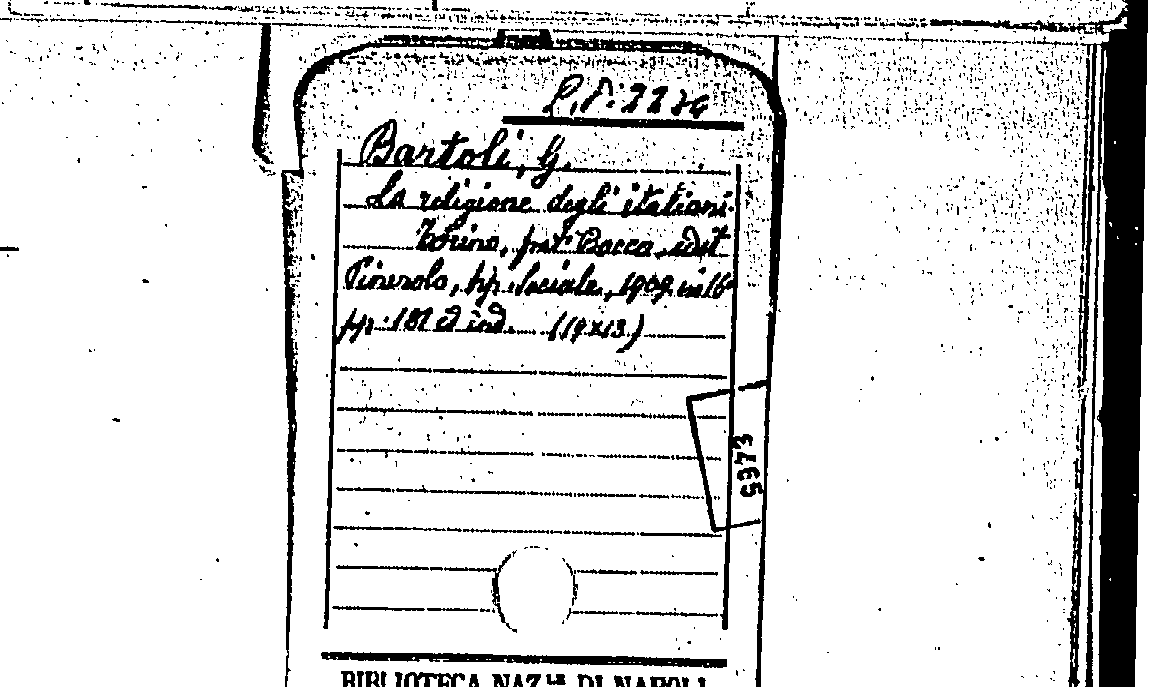 Bartoli, G.
La religione degli italiani.
Torino, frat. Bocca, edit
Pinerolo, tip. Sociale, 1909 in 16°
pp. 181 ed ind. (19x13)
5973
BIBLIOTECA NAZ.LE DI NAPOLI